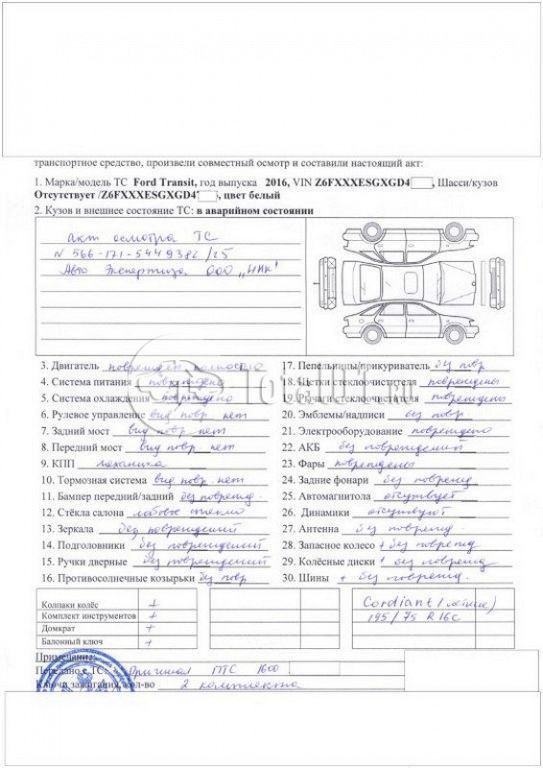 транспортное средство, произвели совместный осмотр и составили настоящий акт:
1. Марка/модель ТС Ford Transit, год выпуска 2016, VIN Z6FXXXESGXGD4, Шасси/кузов
Отсутствует /Z6FXXXESGXGD4, цвет белый
2. Кузов и внешнее состояние ТС: в аварийном состоянии
Акт осмотра ТС
N 566-171-5449382/25
Авто Экспертиза ООО "НИК"
3. Двигатель поврежден полностью
4. Система питания повреждена
5. Система охлаждения повреждено
6. Рулевое управление вид. повр. нет
7. Задний мост вид повр. нет
8. Передний мост вид повр. нет
9. КПП механика
10. Тормозная система вид повр. нет
11. Бампер передний/задний без поврежд.
12. Стёкла салона лобовое
13. Зеркала без повреждений
14. Подголовники без повреждений
15. Ручки дверные без повреждений
16. Противосолнечные козырьки без повр
17. Пепельницы/прикуриватель без повр
18. Щетки стеклоочистителя повреждены
19. Рычаги стеклоочистителя повреждены
20. Эмблемы/надписи без повр
21. Электрооборудование повреждено
22. АКБ без повреждений
23. Фары повреждены
24. Задние фонари без поврежд.
25. Автомагнитола отсутствует
26. Динамики отсутствуют
27. Антенна без поврежд.
28. Запасное колесо + без поврежд
29. Колёсные диски + без поврежд
30. Шины + без поврежд.
Колпаки колёс +
Комплект инструментов +
Домкрат +
Балонный ключ +
Cordiant
195/75 R16C
Примечание:
Передано с ТС: Оригинал ПТС
Ключи зажигания, кол-во 2 комплекта
TotalHit.ru